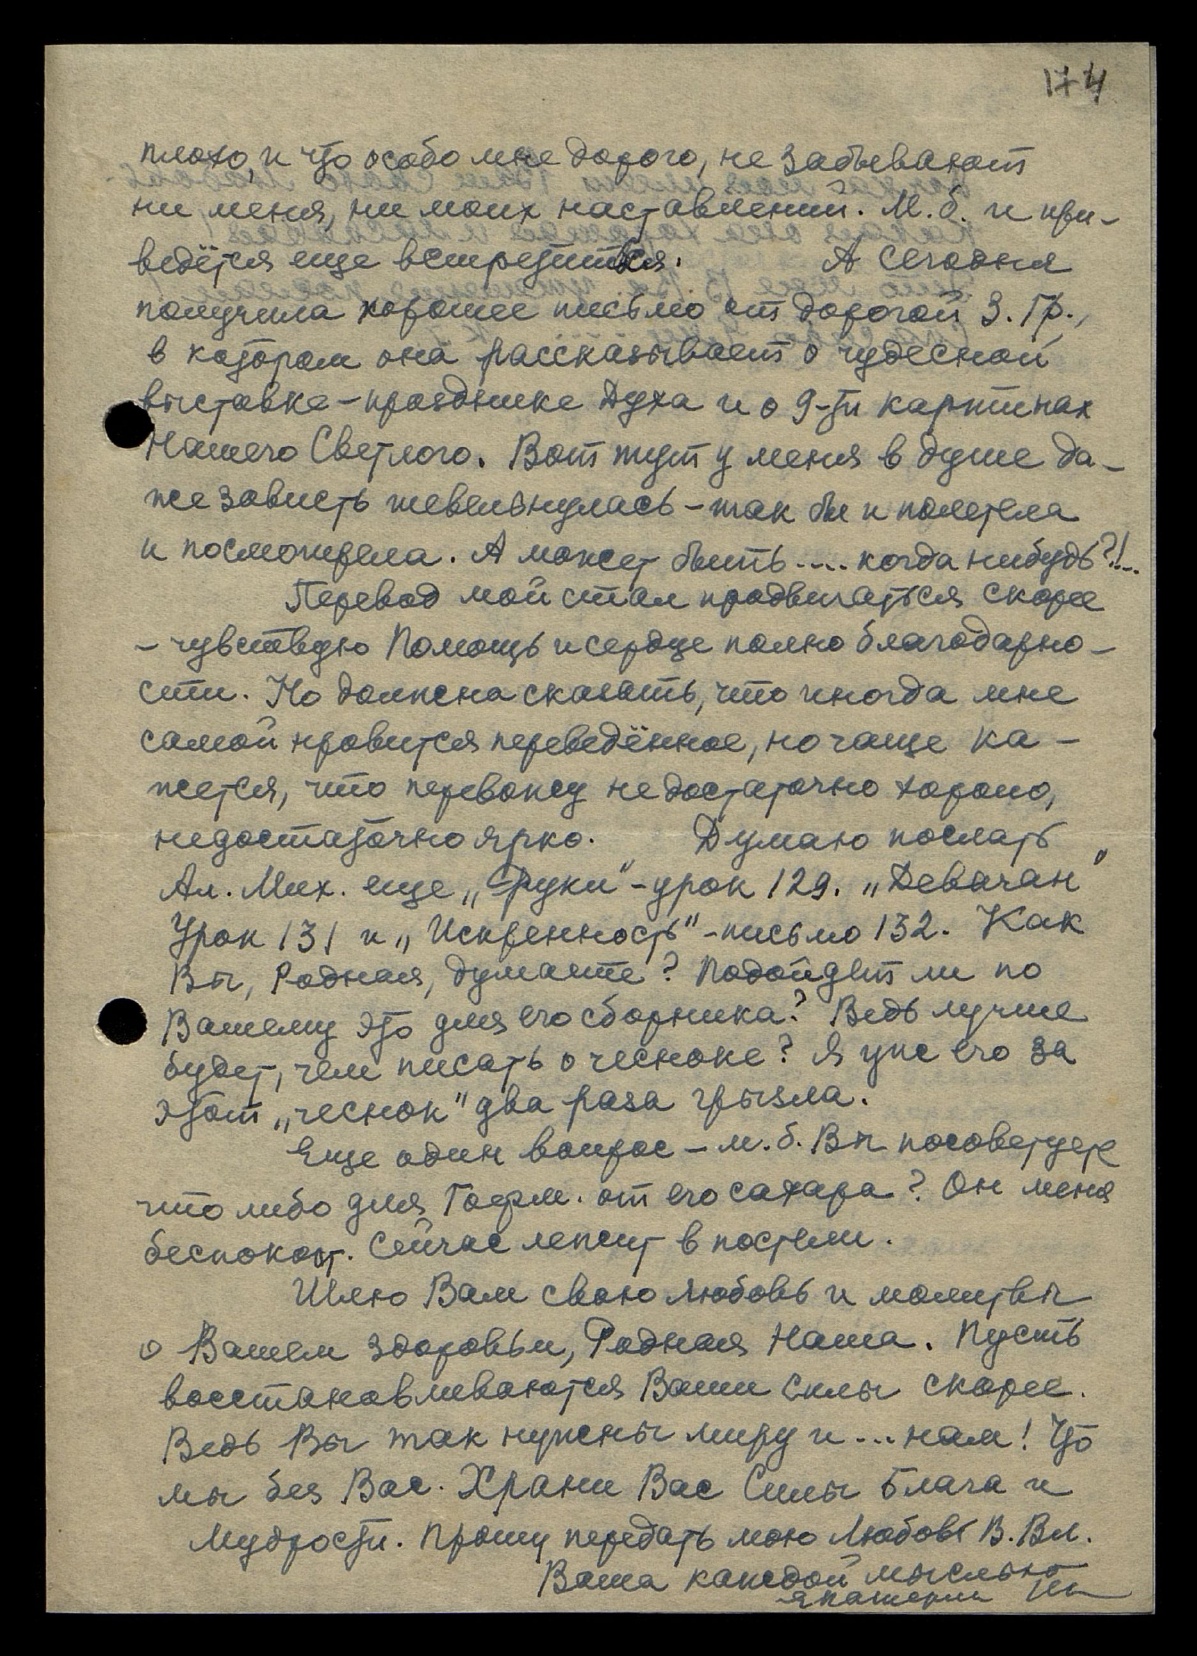 174
плохо, и что особо мне дорого, не забывают
ни меня, ни моих наставлений. М.б. и при-
ведётся еще встретиться. А сегодня
получила хорошее письмо от дорогой З. Гр.,
в котором она рассказывает о чудесной
выставке – празднике Духа и о 9-ти картинах
Нашего Светлого. Вот тут у меня в душе да-
же зависть шевельнулась – так бы и полетела
и посмотрела. А может быть .... когда нибудь?!...
Перевод мой стал продвигаться скорее
– чувствую Помощь и сердце полно благодарно-
сти. Но должна сказать, что иногда мне
самой нравится переведённое, но чаще ка-
жется, что перевожу недостаточно хорошо,
недостаточно ярко. Думаю послать
Ал. Мих. еще „Руки" – урок 129. „Девачан"
Урок 131 и „Искренность" – письмо 132. Как
Вы, Родная, думаете? Подойдет ли по
Вашему это для его сборника? Ведь лучше
будет, чем писать о чесноке? Я уже его за
этот „чеснок" два раза грызла.
Еще один вопрос – м.б. Вы посоветуете
что либо для Гофм. от его сахара? Он меня
беспокоит. Сейчас лежит в постели.
Шлю Вам свою любовь и молитвы
о Вашем здоровьи, Родная Наша. Пусть
восстанавливаются Ваши силы скорее.
Ведь Вы так нужны миру и ... нам! Что
мы без Вас. Храни Вас Силы Блага и
Мудрости. Прошу передать мою Любовь В. Вл.
Ваша каждой мыслью